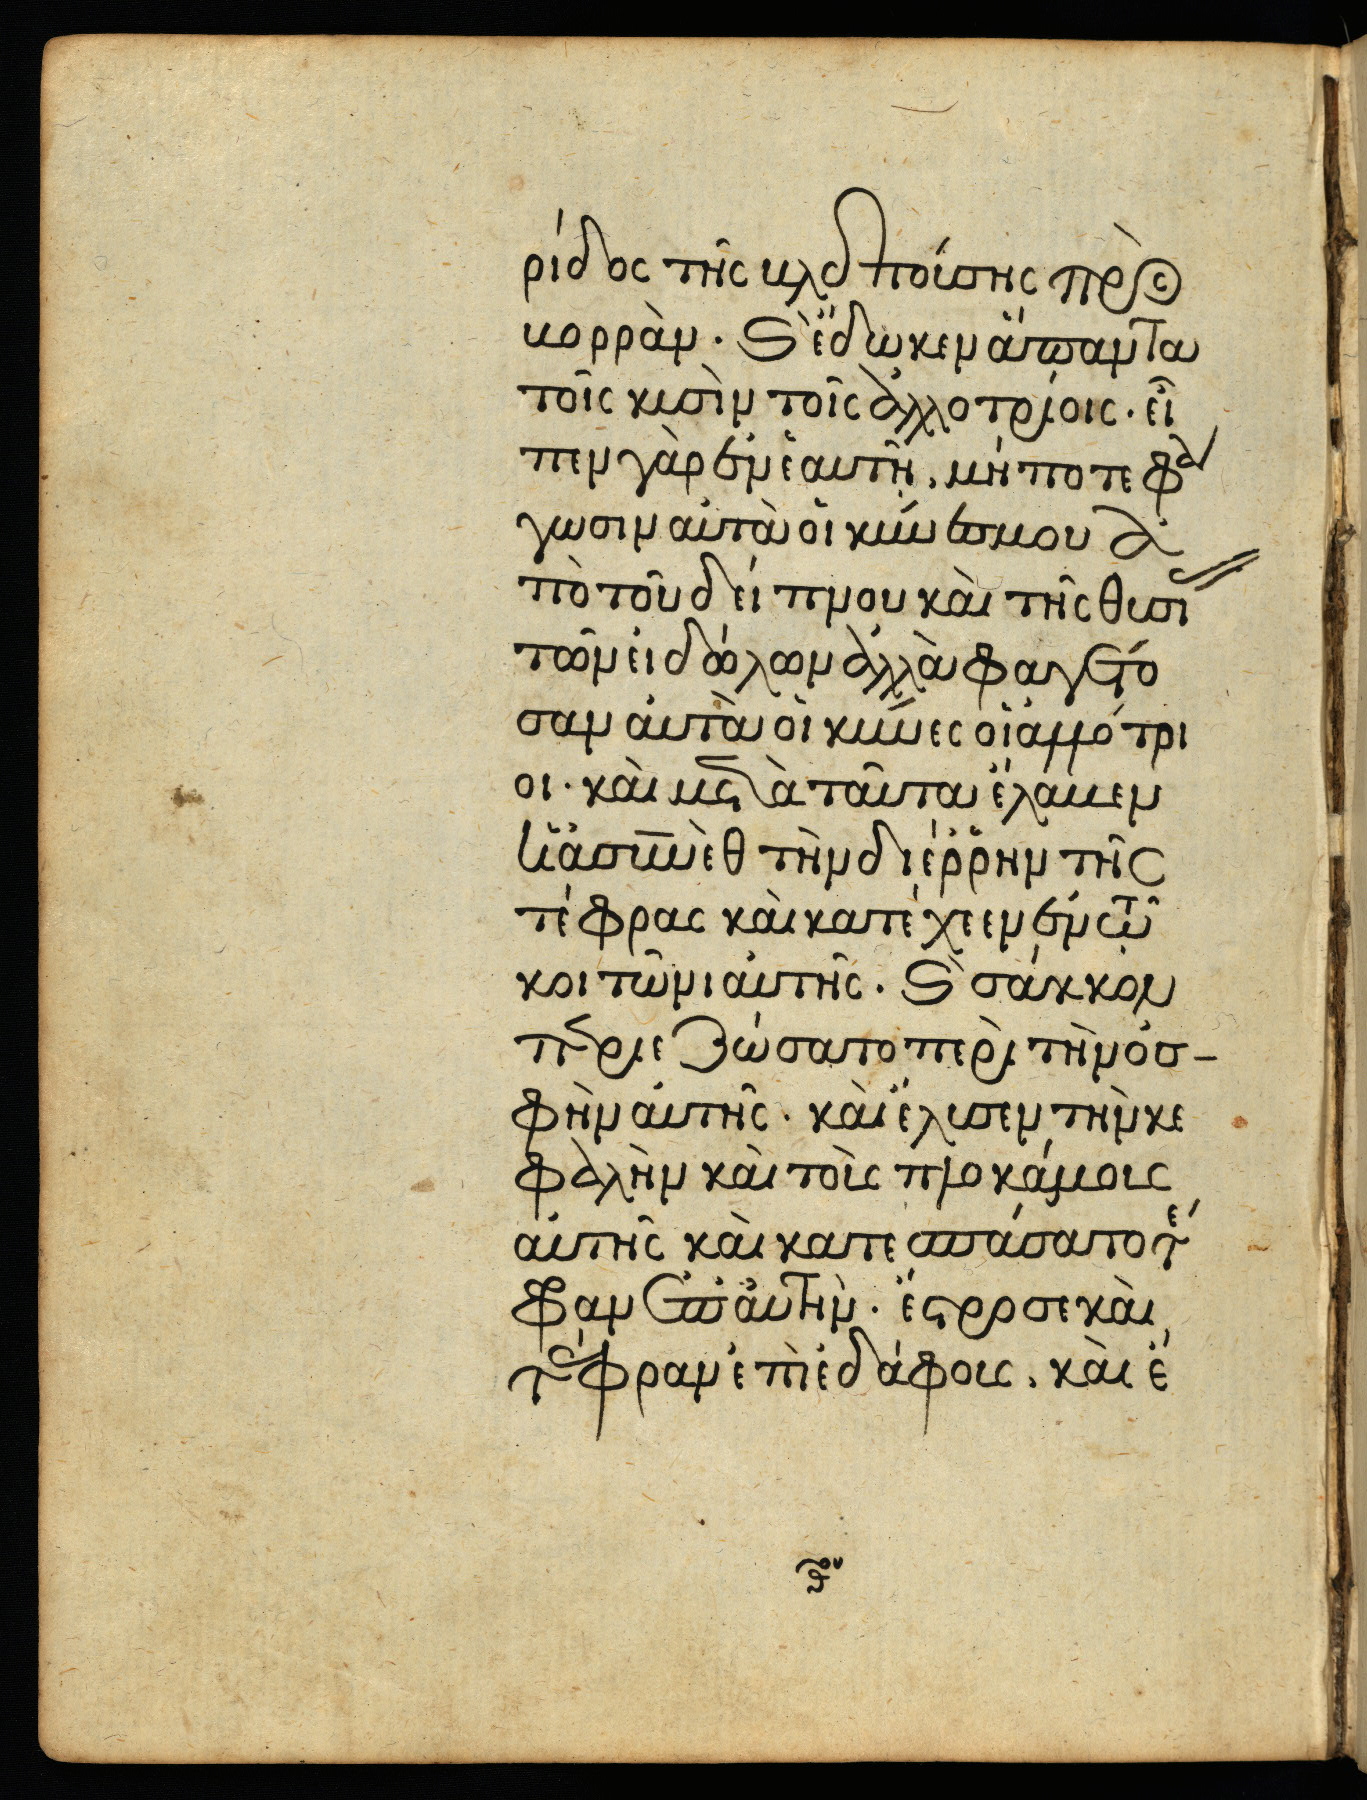 ρίδος τῆς βλεπούσης πρὸς
βορρὰν. καὶ ἔδωκεν ἅπαντα
τοῖς κυσὶν τοῖς ἀλλοτρίοις. εἶ
πεν γὰρ ἐν ἑαυτῇ. μήποτε φά
γωσιν αὐτὰ οἱ κύνες μου ἀ
πὸ τοῦ δείπνου καὶ τῆς θυσίας
τῶν εἰδώλων ἀλλὰ φαγέτω
σαν αὐτὰ οἱ κύνες οἱ ἀλλότρι
οι. καὶ μετὰ ταῦτα ἔλαβεν
ἡ ἀσυνὲθ τὴν διέρρην τῆς
τέφρας καὶ κατέχεεν ἐν τῷ
κοιτῶνι αὐτῆς. καὶ σάκκον
περιεζώσατο περὶ τὴν ὀσ-
φὴν αὐτῆς. καὶ ἔλυσεν τὴν κε
φαλὴν καὶ τοὺς πλοκάμους
αὐτῆς καὶ κατεπάσατο τέ
φραν ἐπ' αὐτὴν. ἔστρωσε καὶ
τέφραν ἐπὶ ἐδάφους. καὶ ἐ